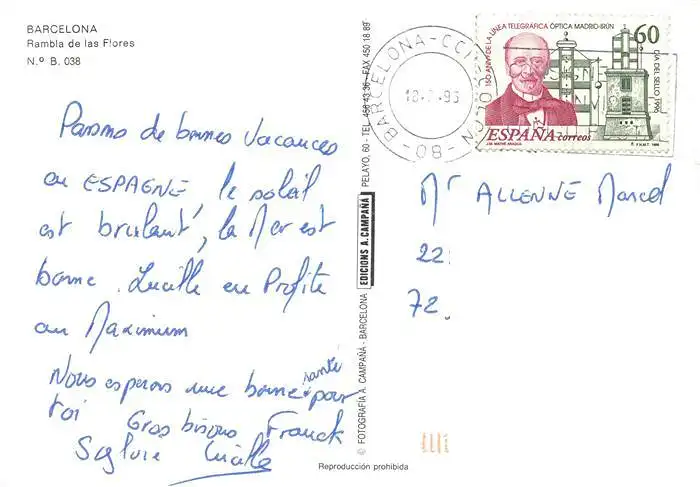 BARCELONA
Rambla de las Flores
N.º B. 038
Passons de bonnes vacances
en ESPAGNE, le soleil
est brulant, la Mer est
bonne. Lucille en Profite
au Maximum
Nous esperons une bonne santé pour
toi Gros bisous Franck
Sylvie Lucille
Reproducción prohibida
© FOTOGRAFÍA A. CAMPAÑÁ - BARCELONA
EDICIONS A. CAMPAÑÁ
PELAYO, 60 - TEL. 456 43 36 - FAX 450 18 89
BARCELONA-CC
08
150 ANIV. DE LA LINEA TELEGRÁFICA ÓPTICA MADRID-IRÚN
60
DIA DEL SELLO 1996
ESPAÑA correos
J.M. MATHE ARAGUA
F.N.M.T. 1996
Mr ALLENNE Marcel
22
72